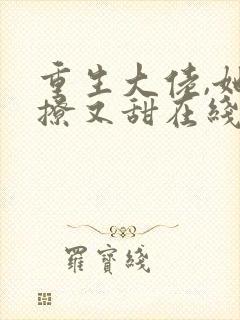 重生大佬,她
撩又甜在綫
羅寶綫